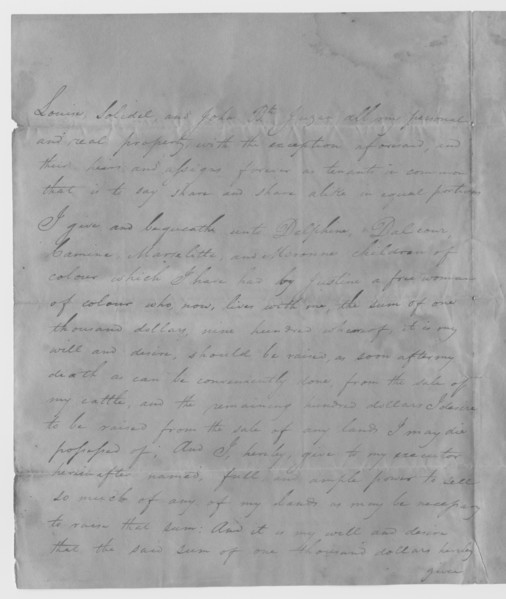 Louise, Solidel, and John Bte Juzan, all my personal
and real property, with the exception aforesaid, and
their heirs and assigns forever as tenants in common
that is to say share and share alike in equal portions
I give and bequeathe unto Delphine,
and children of
colour which I have had by Justine a free woman
of colour who, now, lives with me, the sum of one
thousand dollars, nine hundred whereof, it is my
will and desire, should be raised, as soon after my
death as can be conveniently done from the sale of
my cattle, and the remaining hundred dollars I desire
to be raised from the sale of any land I may die
possessed of; And I, hereby, give to my executor
hereinafter named, full and ample power to sell
so much of any of my lands as may be necessary
to raise that sum: And it is my will and desire
that the said sum of one thousand dollars hereby
given